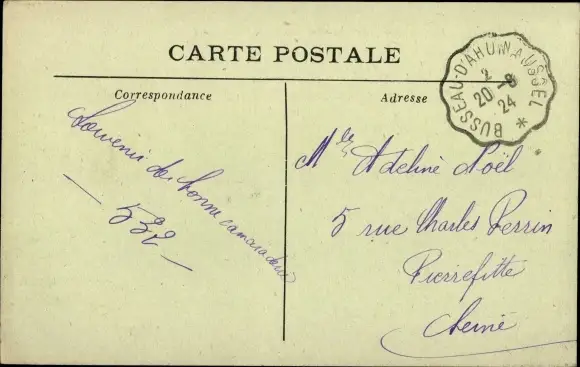 CARTE POSTALE
Correspondance
Souvenir de bonne camaraderie
— 532 —
Adresse
BUSSEAU-D'AHUN A USSEL *
2
20 - 8
24
Mlle Adeline Noël
5 rue Charles Perrin
Pierrefitte
Seine